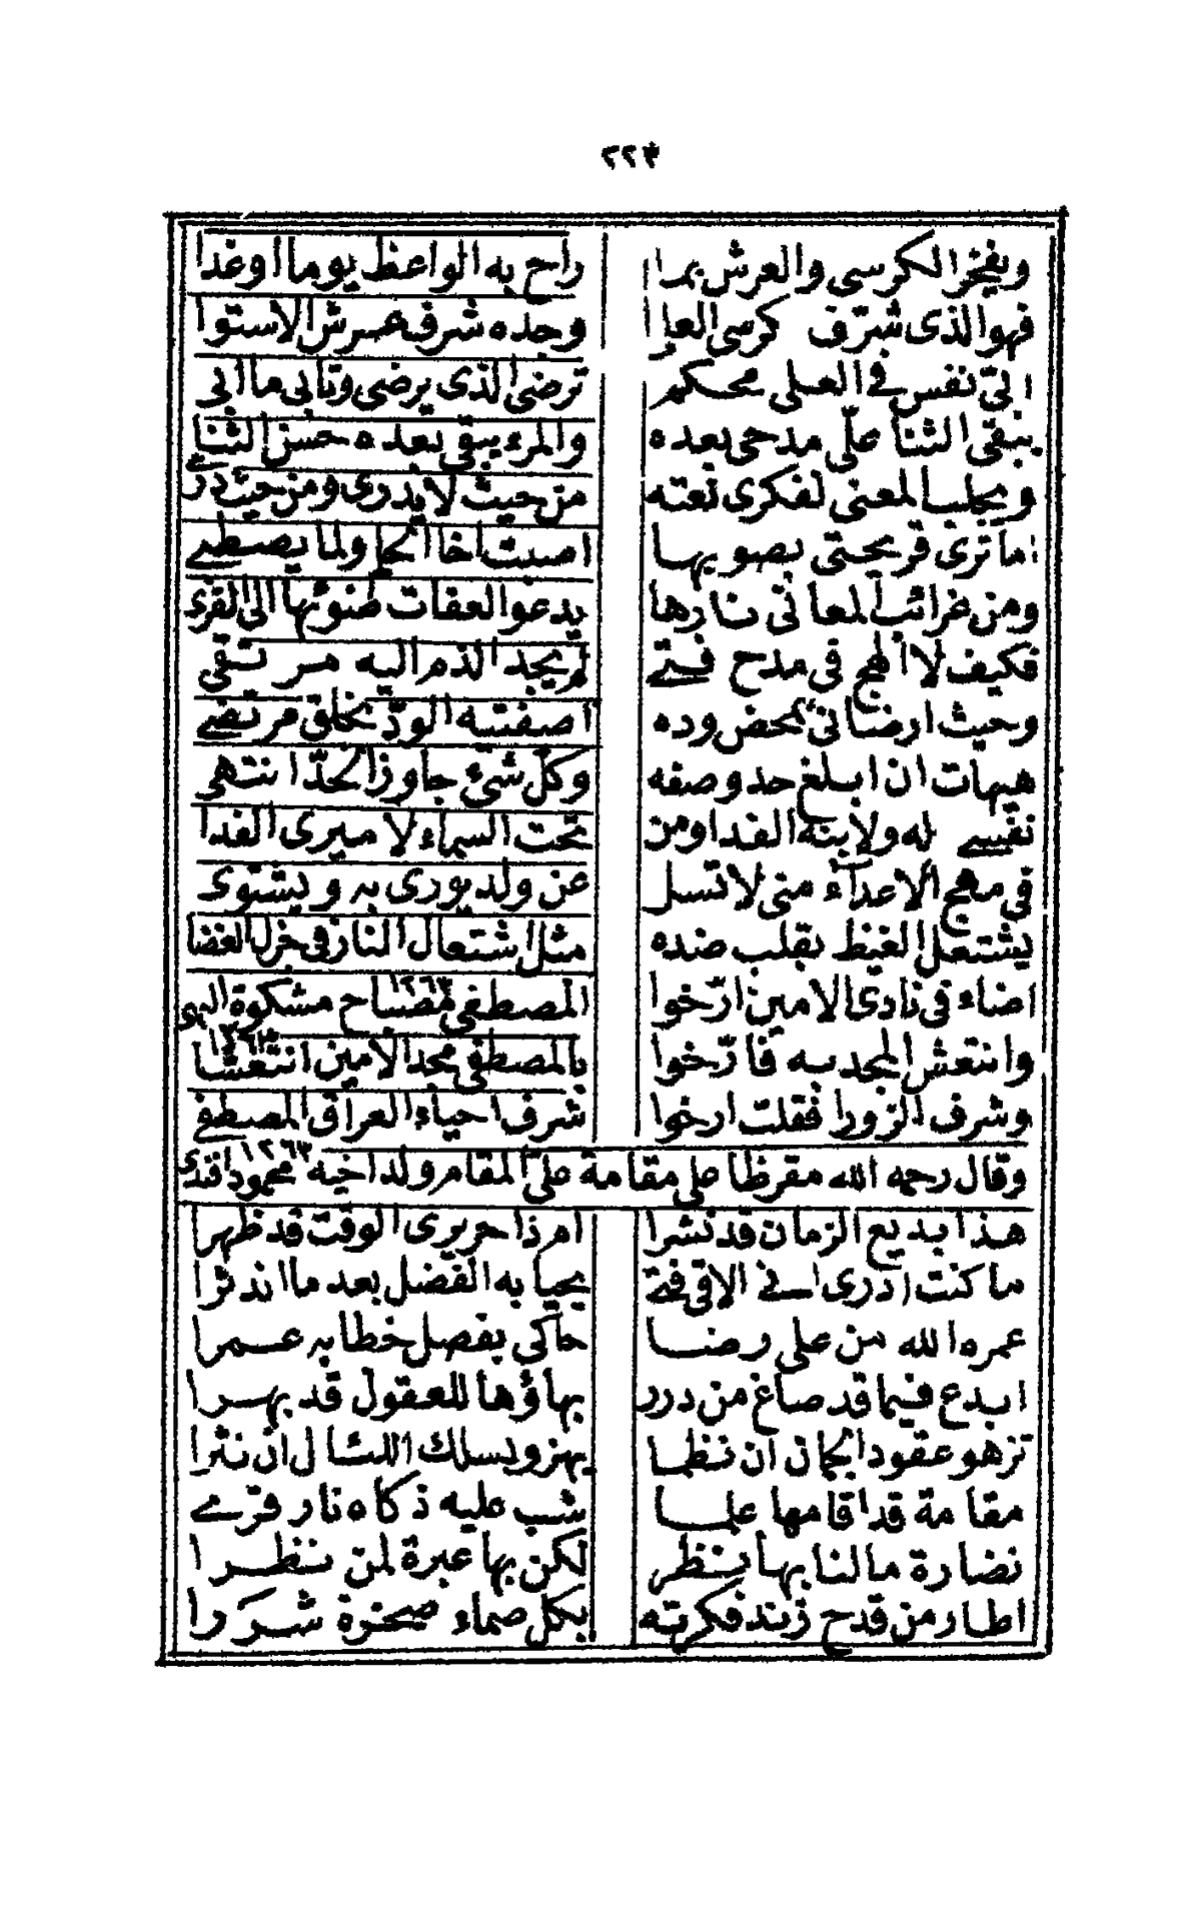 ٢٢٣
ويفخر الكرسى والعرش بما راح به الواعظ يوما أو غدا
فهو الذى شرّف كرسى العلا وجده شرف عرش الاستوا
لىّ نفس فى العلى محكم ترضى الذى يرضى وتابى ما ابى
يبقى الثنا علّى مدحى بعده والمرء يبقى بعده حسن الثنا
ويجلب المعنى لفكرى نعته من حيث لا يدرى ومن حيث درى
ما ترى قريحتى بصوبها اصبت اخا الحيا ولما يصطفى
ومن غرائب المعانى نارها يدعو العفات ضوئها الى القرى
فكيف لا الهج فى مدح فتى لم يجد الذم اليه مرتقى
وحيث ارضانى بمحض وده اصفيته الودّ بخلق مرتضى
هيهات ان ابلغ حد وصفه وكلّ شئ جاوز الحدّ انتهى
نفسى له ولابنه الفدا ومن تحت السماء لا ميرى الفدا
فى مهج الاعداء منى لا تسل عن ولد يورى به ويشتوى
يشتعل الغيظ بقلب ضده مثل اشتعال النار فى جزل الغضا
اضاء فى نادى الامين ارّخوا المصطفى مصباح مشكوة البهو ١٢٦٣
وانتعش المجد به فارّخوا بالمصطفى مجد الامين انتعشا ١٢٦٣
وشرف الزورا فقلت ارخوا شرف احياء العراق المصطفى ١٢٦٣
وقال رحمه الله مقرظا على مقامة علىّ المقام ولد اخيه محمود افندى
هذا بديع الزمان قد نشرا ام ذا حريرى الوقت قد ظهرا
ما كنت ادرى فى الافق فتى يحيا به الفضل بعد ما اندثرا
عمره الله من على رضا حاكى بفصل خطابه عمرا
ابدع فيما قد صاغ من درر بهاؤها للعقول قد بهرا
تزهو عقود الجمان ان نظما يهزو بسلك اللئالى ان نثرا
مقامة قد اقامها علما شب عليه ذكاه نار قرى
نضارة ما لنا بها بنظر لكن بها عبرة لمن نظرا
اطار من قدح زند فكرته بكل صماء صخرة شررا